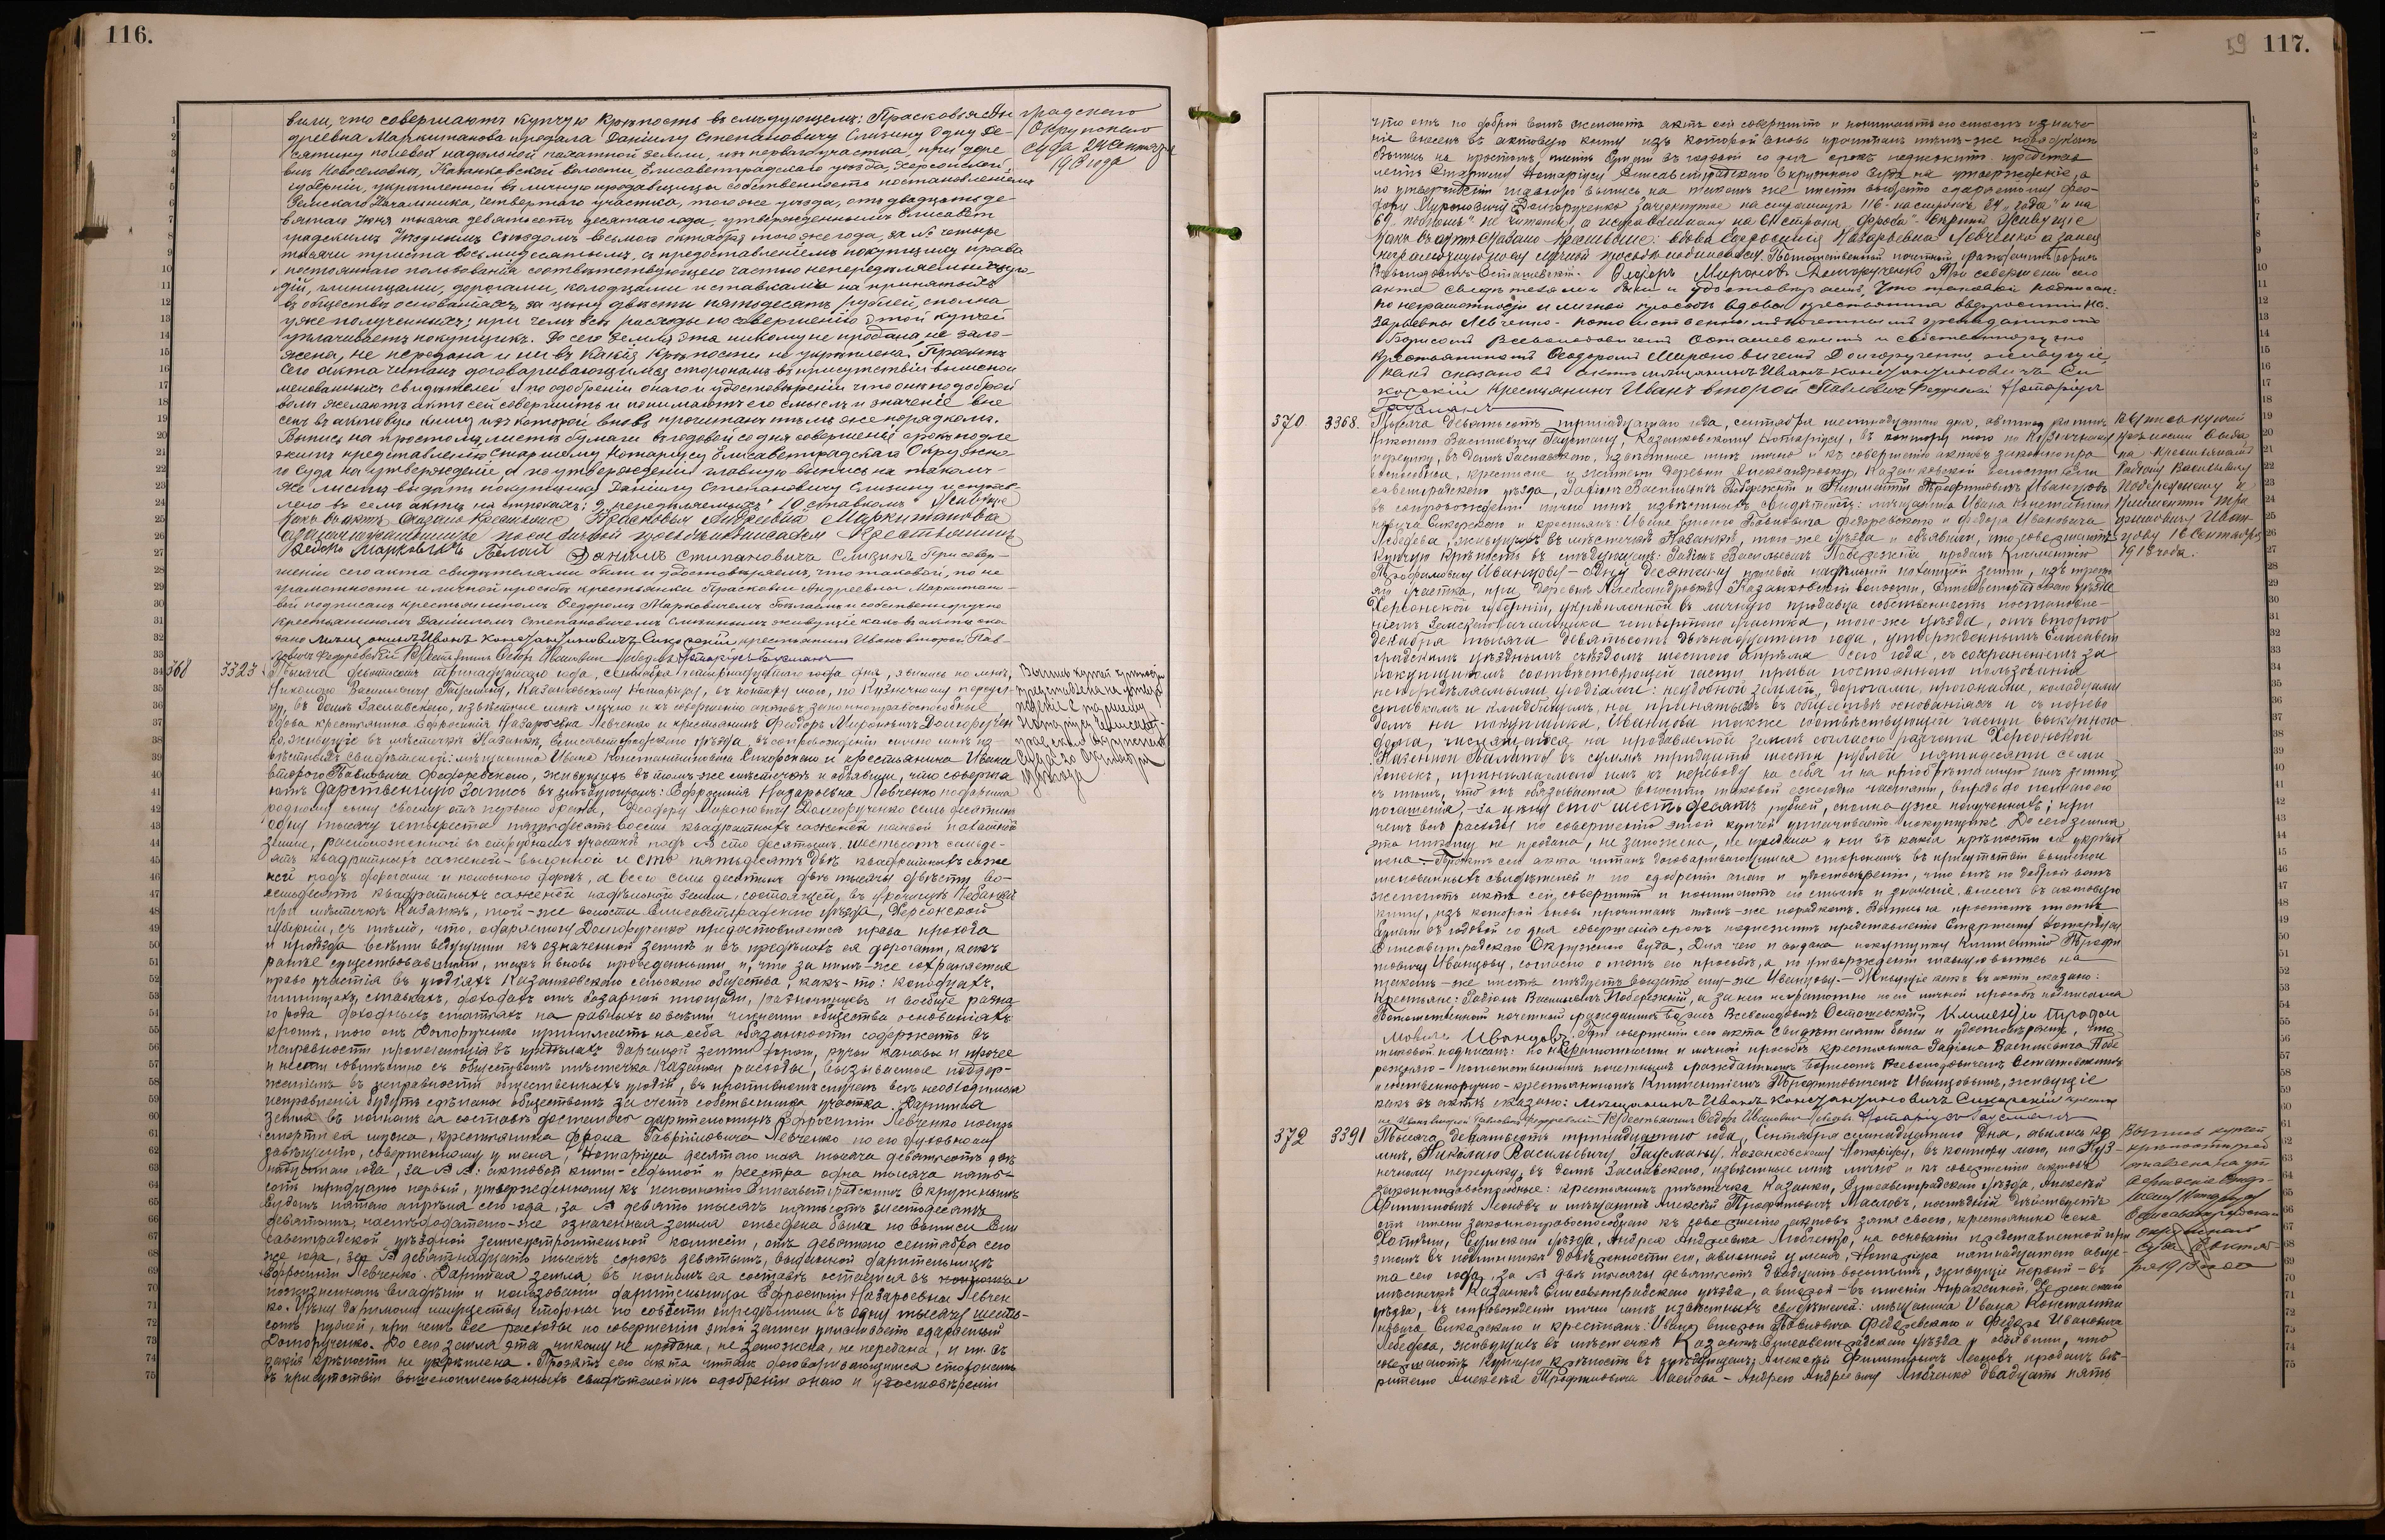 116.
вили, что совершаютъ купчую крѣпость въ слѣдующемъ: Прасковья Ан
дреевна Маркитанова продала Данiилу Степановичу Слизину одну де-
сятину полевой надѣльной пахатной земли, изъ перваго участка, при дере
внѣ Новоселовкѣ, Казанковской волости, Елисаветградскаго уѣзда, Херсонской
губернiи, укрѣпленной въ личную продавщицы собственность постановленiемъ
Земскаго Начальника, четвертаго участка, того же уѣзда, отъ двадцать де-
вятаго Iюня тысяча девятьсотъ десятаго года, утвержденнымъ Елисавет
градскимъ Уѣзднымъ Съѣздомъ восьмого октября того же года, за № четыре
тысячи триста восьмидесятымъ, съ предоставленiемъ покупщику права
постояннаго пользованiя соотвѣтствующею частью непередѣляемыхъ уго-
дiй, глинищами, дорогами, колодцами и ставками на принятыхъ
въ обществѣ основанiяхъ, за цѣну двѣсти пятьдесятъ рублей, сполна
уже полученныхъ; при чемъ всѣ расходы по совершенiю этой купчей
уплачиваетъ покупщикъ. До сего земля эта никому не продана, не зало-
жена, не передана и ни въ какiя крѣпости не укрѣплена. Проектъ
сего акта читанъ договаривающимся сторонамъ въ присутствiи вышепои
менованныхъ свидѣтелей и по одобренiи онаго и удостовѣренiи что они по доброй
воли желаютъ актъ сей совершить и понимаютъ его смыслъ и значенiе вне
сенъ въ актовую книгу изъ которой вновь прочитанъ тѣмъ же порядкомъ.
Выпись на простомъ листѣ бумаги въ годовой со дня совершенiя срокъ подле
житъ представленiю Старшему Нотарiусу Елисаветградскаго Окружна
го Суда на утвержденiе, а по утвержденiи главную выпись на такомъ-
же листѣ выдать покупщику Данiилу Степановичу Слизину
Живущiе
какъ въ актѣ сказано Крестьяне Прасковья Андреевна Маркитанова
Крестьянинъ
Федоръ Марковичъ Данiилъ Степановичъ Слизинъ При совер-
шенiи сего акта свидѣтелями были и удостовѣряемъ, что таковой, по не
грамотности и личной просьбѣ крестьянки Прасковьи Андреевны Маркитано-
вой подписанъ крестьяниномъ Федоромъ Марковичемъ и собственноручно
крестьяниномъ Данiиломъ Степановичемъ Слизинымъ живущiе какъ въ актѣ ска
зано мѣщанинъ Иванъ Константиновичъ Сикорскiй крестьянинъ Иванъ второй Пав-
ловичъ Федоревскiй Крестьянинъ Федоръ Ивановичъ Лебедевъ Нотарiусъ Гаусманъ
градскаго
Окружнаго
Суда 24 Сентября
1913 года
368 3323
Тысяча девятьсотъ тринадцатаго года, Сентября дня, явились ко мнѣ,
Николаю Васильевичу Гаусману, Казанковскому Нотарiусу, въ контору мою, по Кузнечному переул
ку, въ домѣ Заславскаго, извѣстные мнѣ лично и къ совершенiю актовъ законноправоспособные
вдова крестьянина Евфросинiя Назарьевна Левченко и крестьянинъ Феодоръ Мироновичъ Долгоручен
ко, живущiе въ мѣстечкѣ Казанкѣ, Елисаветградскаго уѣзда, въ сопровожденiи лично мнѣ из-
вѣстныхъ свидѣтелей: мѣщанина Ивана Константиновича Сикорскаго и крестьянина Ивана
второго Павловича Федоревскаго, живущихъ въ томъ же мѣстечкѣ и объявили, что соверша
ютъ дарственную запись въ слѣдующемъ: Евфросинiя Назарьевна Левченко подарила
родному сыну своему отъ перваго брака, Феодору Мироновичу Долгорученко семь десятинъ
одну тысячу четыреста пятьдесятъ восемь квадратныхъ саженей полевой пахатной
земли, расположенной въ отрубномъ участкѣ подъ № сто десятымъ, шестьсотъ семьде-
сятъ квадратныхъ саженей выгонной и сто пятьдесятъ двѣ квадратныхъ саже
ней подъ дорогами и половиною дорогъ, а всего семь десятинъ двѣ тысячи двѣсти во-
семьдесятъ квадратныхъ саженей надѣльной земли, состоящей, въ урочищѣ
при мѣстечкѣ Казанкѣ, той-же волости Елисаветградскаго уѣзда, Херсонской
губернiи, съ тѣмъ, что, одаряемому Долгорученко предоставляется право прохода
и проѣзда всѣми ведущими къ означенной землѣ и въ предѣлахъ ея дорогами, какъ
ранѣе существовавшими, такъ и вновь проведенными и, что за нимъ-же сохраняется
право участiя въ угодiяхъ Казанковскаго сельскаго общества, какъ-то: колодцахъ,
глинищахъ, ставкахъ, доходахъ отъ базарной площади, и вообще разна
го рода доходныхъ статьяхъ на равныхъ со всѣми членами общества основанiяхъ
кромѣ, того онъ Долгорученко принимаетъ на себя обязанность содержать въ
исправности пролегающiя въ предѣлахъ даримой земли дороги, ручьи канавы и прочее
и нести совмѣстно съ обществомъ мѣстечка Казанки расходы, вызываемые поддер-
жанiемъ въ исправности общественныхъ угодiй, въ противномъ случаѣ всѣ необходимыя
исправленiя будутъ сдѣланы обществомъ за счетъ собственника участка. Даримая
земля въ полномъ ея составѣ досталась дарительницѣ Евфросинiи Левченко послѣ
смерти ея мужа, крестьянина Фрола Гаврiиловича Левченко по его духовному
завѣщанiю, совершенному у меня, Нотарiуса десятаго мая тысяча девятьсотъ две
надцатаго года, за №№: актовой книги - седьмой и реестра одна тысяча пять-
сотъ тридцать первый, утвержденному къ исполненiю Елисаветградскимъ Окружнымъ
Судомъ пятаго апрѣля сего года, за № девять тысячъ пятьсотъ шестьдесятъ
девятымъ, наслѣдодателю-же означенная земля отведена была по выписи Ели
саветградской уѣздной землеустроительной комиссiи, отъ девятаго сентября сего
же года, за № девятнадцать тысячъ сорокъ девятымъ, выданной дарительницѣ
Евфросинiи Левченко. Даримая земля, въ полномъ ея составѣ остается въ
пожизненномъ владѣнiи и пользованiи дарительницы Евфросинiи Назарьевны Левчен
ко. Цѣну даримому имуществу стороны по совѣсти опредѣлили въ одну тысячу шесть-
сотъ рублей, при чемъ всѣ расходы по совершенiю этой записи уплачиваетъ одаряемый
Долгорученко. До сего земля эта никому не продана, не заложена, не передана, и ни въ
какiя крѣпости не укрѣплена. Проектъ сего акта читанъ договаривающимся сторонамъ
въ присутствiи вышепоименованныхъ свидѣтелей и по одобренiи онаго и удостовѣренiи
117.
59
что онѣ по доброй волѣ желаютъ актъ сей совершить и понимаютъ его смыслъ и значе
нiе внесенъ въ актовую книгу изъ которой вновь прочитанъ тѣмъ-же порядкомъ
Выпись на простомъ листѣ бумаги въ годовой со дня срокъ подлежитъ представ
ленiю Старшему Нотарiусу Елисаветградскаго Окружнаго Суда на утвержденiе, а
по утвержденiи главную выпись на такомъ же листѣ выдать одаряемому Фео-
дору Мироновичу Долгорученко Зачеркнутое на страницѣ 116
Живущiе
какъ въ актѣ сказано крестьяне: вдова Евфросинiя Назарьевна Левченко а за нея
неграмотную по ея личной просьбѣ подписался Потомственный почетный гражданинъ Борисъ
Всеволодовичъ Осташевскiй Феодоръ Мироновъ Долгорученко При совершенiи сего
акта свидѣтелями были и удостовѣряемъ, что таковой подписанъ:
по неграмотности и личной просьбѣ вдовы крестьянина Евфросинiи На-
зарьевны Левченко - потомственнымъ почетнымъ гражданиномъ
Борисомъ Всеволодовичемъ Осташевскимъ и собственноручно
крестьяниномъ Феодоромъ Мироновичемъ Долгорученко, живущiе
какъ сказано въ актѣ мѣщанинъ Иванъ Константиновичъ Си
корскiй крестьянинъ Иванъ второй Павловичъ Федоревскiй Нотарiусъ
Гаусманъ
370 3368
Тысяча девятьсотъ тринадцатаго года, сентября шестнадцатаго дня, явились ко мнѣ
Николаю Васильевичу Гаусману, Казанковскому Нотарiусу, въ контору мою по Кузнечному
переулку, въ домѣ Заславскаго, извѣстные мнѣ лично и къ совершенiю актовъ законно пра
воспособные, крестьяне и жители деревни Александровки, Казанковской волости Ели
саветградскаго уѣзда, Родiонъ Васильевичъ Побережнiй и Климентiй Трофимовичъ Иванцовъ
въ сопровожденiи лично мнѣ извѣстныхъ свидѣтелей: мѣщанина Ивана Константи
новича Сикорскаго и крестьянъ: Ивана второго Павловича Федоревскаго и Федора Ивановича
Лебедева, живущихъ въ мѣстечкѣ Казанкѣ, того-же уѣзда и объявили, что совершаютъ
купчую крѣпость въ слѣдующемъ: Родiонъ Васильевичъ Побережнiй продалъ Климентiю
Трофимовичу Иванцову - одну десятину полевой надѣльной пахатной земли, изъ треть
яго участка, при деревнѣ Александровкѣ, Казанковской волости, Елисаветградскаго уѣзда
Херсонской губернiи, укрѣпленной въ личную продавца собственность постановле-
нiемъ Земскаго Начальника четвертаго участка, того-же уѣзда, отъ второго
декабря тысяча девятьсотъ двѣнадцатаго года, утвержденнымъ Елисавет
градскимъ уѣзднымъ съѣздомъ шестого апрѣля сего года, съ сохраненiемъ за
покупщикомъ соотвѣтствующей части права постояннаго пользованiя
непередѣляемыми угодiями: неудобной землей, дорогами, прогонами, колодцами
ставкомъ и кладбищемъ, на принятыхъ въ обществѣ основанiяхъ и съ перево
домъ на покупщика, Иванцова также соотвѣтствующей части выкупного
долга, числящагося на продаваемой землѣ согласно разчета Херсонской
Казенной Палаты въ суммѣ тридцати шести рублей пятидесяти семи
копѣекъ, принимаемаго имъ къ переводу на себя и на прiобрѣтаемую имъ землю
съ тѣмъ, что онъ обязывается вносить таковой ежегодно частями, впредь до полнаго его
погашенiя, - за цѣну сто шестьдесятъ рублей, сполна уже полученныхъ; при
чемъ всѣ расходы по совершенiю этой купчей уплачиваетъ покупщикъ. До сего земля
эта никому не продана, не заложена, не передана и ни въ какiя крѣпости не укрѣп
лена. - Проектъ сего акта читанъ договаривающимся сторонамъ въ присутствiи вышепои
менованныхъ свидѣтелей и по одобренiи онаго и удостовѣренiи, что онѣ по доброй волѣ
желаютъ актъ сей, совершить и понимаютъ его смыслъ и значенiе, внесенъ въ актовую
книгу, изъ которой вновь прочитанъ тѣмъ-же порядкомъ. Выпись на простомъ листѣ
бумаги въ годовой со дня совершенiя срокъ подлежитъ представленiю Старшему Нотарiусу
Елисаветградскаго Окружного Суда, для чего и выдана покупщику Климентiю Трофи
мовичу Иванцову, согласно о томъ его просьбы, а по утвержденiи главную выпись на
такомъ-же листѣ слѣдуетъ выдать ему-же Иванцову. - Живущiе какъ въ актѣ сказано:
Крестьяне: Родiонъ Васильевичъ Побережнiй, а за него неграмотнаго по его личной просьбѣ подписался
Потомственный почетный гражданинъ Борисъ Всеволодовичъ Осташевскiй, Климентiй Трофи
мовичъ Иванцовъ. При совершенiи сего акта свидѣтелями были и удостовѣряемъ, что
таковой подписанъ: по неграмотности и личной просьбѣ крестьянина Родiона Васильевича Побе
режнаго - потомственнымъ почетнымъ гражданиномъ Борисомъ Всеволодовичемъ Осташевскимъ
и собственноручно - крестьяниномъ Климентiемъ Трофимовичемъ Иванцовымъ, живущiе
какъ въ актѣ сказано: мѣщанинъ Иванъ Константиновичъ Сикорскiй крестья
нинъ Иванъ второй Павловичъ Федоревскiй Крестьянинъ Федоръ Ивановичъ Лебедевъ. Нотарiусъ Гаусманъ
Выпись купчей
крѣпости выда
на крестьянамъ
Родiону Васильевичу
Побережному и
Климентiю Тро
фимовичу Иван
цову 16 Сентября
1913 года.
372 3391
Тысяча девятьсотъ тринадцатаго года, Сентября семнадцатаго дня, явились ко
мнѣ, Николаю Васильевичу Гаусману, Казанковскому Нотарiусу, въ контору мою, по Куз-
нечному переулку, въ домѣ Заславскаго, извѣстные мнѣ лично и къ совершенiю актовъ
законноправоспособные: крестьянинъ мѣстечка Казанки, Елисаветградскаго уѣзда, Алексѣй
Филипповичъ Леоновъ и мѣщанинъ Алексѣй Трофимовичъ Масловъ, послѣднiй дѣйствуетъ
отъ имени законноправоспособнаго къ совершенiю актовъ зятя своего, крестьянина села
уѣзда, Андрея Андреевича Любченко, на основанiи представленной при
этомъ въ подлинникѣ довѣренности его, явленной у меня, Нотарiуса пятнадцатаго авгу-
ста сего года, за № двѣ тысячи девятьсотъ двадцать восьмымъ, живущiе первый - въ
мѣстечкѣ Казанкѣ Елисаветградскаго уѣзда, а второй - въ имѣнiи Апраксиной, Херсонскаго
уѣзда, въ сопровожденiи лично мнѣ извѣстныхъ свидѣтелей: мѣщанина Ивана Константи
новича Сикорскаго и крестьянъ: Ивана второго Павловича Федоревскаго и Федора Ивановича
Лебедева, живущихъ въ мѣстечкѣ Казанкѣ Елисаветградскаго уѣзда и объявили, что
совершаютъ купчую крѣпость въ слѣдующемъ: Алексѣй Филипповичъ Леоновъ продалъ вѣ-
рителю Алексѣя Трофимовича Маслова - Андрею Андреевичу Любченко двадцать пять
Выпись купчей
крѣпости пред
ставлена на ут
вержденiе Стар-
шему Нотарiусу
Елисаветградска-
го Окружнаго
Суда